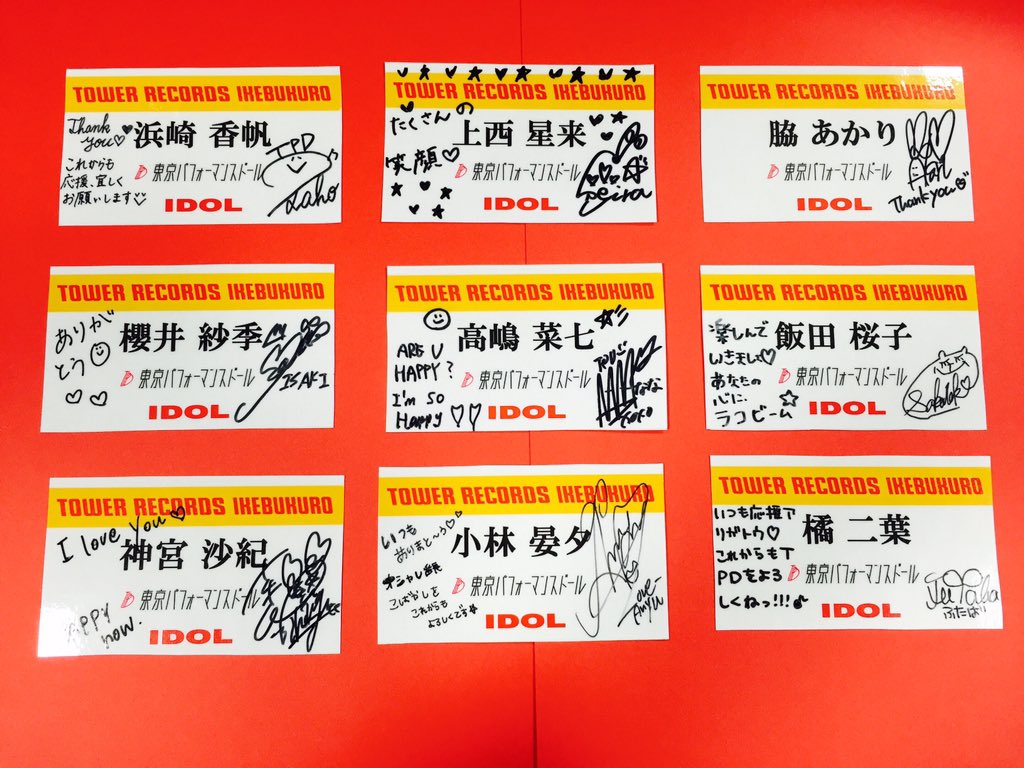 TOWER RECORDS IKEBUKURO
浜崎 香帆
Thank
you♡
これからも
応援、宜しく
お願いします
東京パフォーマンスドール
TPD
Kaho
IDOL
TOWER RECORDS IKEBUKURO
たくさんの
笑顔♡
上西 星来
東京パフォーマンスドール
Seira
IDOL
TOWER RECORDS IKEBUKURO
脇 あかり
東京パフォーマンスドール
Thank you
IDOL
TOWER RECORDS IKEBUKURO
ありが
とう
櫻井 紗季
東京パフォーマンスドール
SAKI
IDOL
TOWER RECORDS IKEBUKURO
高嶋 菜七
ARE U
HAPPY?
I'm so
HAPPY♡♡
東京パフォーマンスドール
IDOL
TOWER RECORDS IKEBUKURO
楽しんで
いきましょ♡
あなたの
心に
ラコビーム
飯田 桜子
東京パフォーマンスドール
IDOL
TOWER RECORDS IKEBUKURO
I love you♡
神宮 沙紀
東京パフォーマンスドール
HAPPY
now.
IDOL
TOWER RECORDS IKEBUKURO
いつも
ありがと〜う♡
小林 晏夕
東京パフォーマンスドール
こばおしを
これからも
よろしくです
IDOL
TOWER RECORDS IKEBUKURO
いつも応援ア
リガトウ♡
これからもT
PDをよろ
しくねっ!!!♪
橘 二葉
東京パフォーマンスドール
ふたば
IDOL